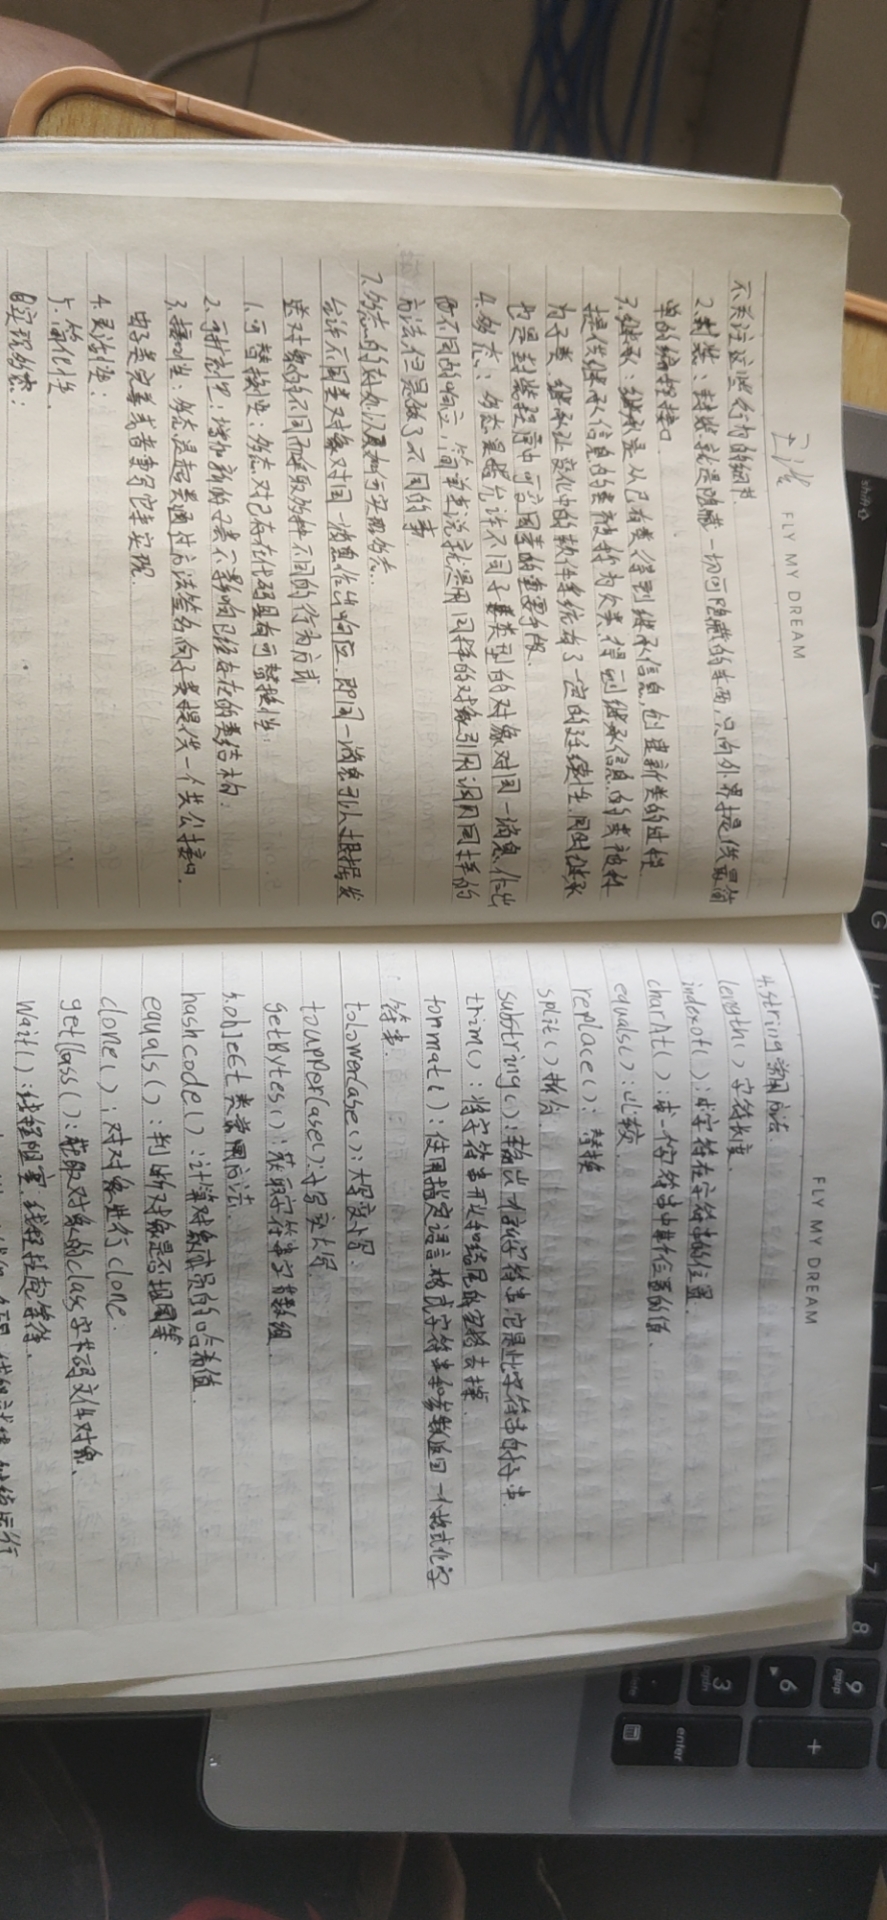 FLY MY DREAM
不关注这些行为的细节.
2.封装:封装就是隐藏一切可隐藏的东西,只向外界提供最简
单的编程接口.
3.继承:继承是从已有类得到继承信息,创建新类的过程
提供继承信息的类被称为父类,得到继承信息的类被称
为子类,继承让变化中的软件系统有了一定的延续性,同时继承
也是封装程序中可变因素的重要手段.
4.多态:多态是指允许不同子类型的对象对同一消息作出
不同的响应,简单来说就是用同样的对象引用调用同样的
方法但是做了不同的事.
7.多态的好处以及如何实现多态.
允许不同类对象对同一消息作出响应,即同一消息可以根据发
送对象的不同而采取多种不同的行为方式
1.可替换性:多态对已存在代码具有可替换性:
2.可扩充性:增加新的子类不影响已经存在的类结构:
3.接口性:多态是超类通过方法签名,向子类提供一个共公接口,
由子类完善或者重写它来实现.
4.灵活性:
5.简化性.
实现多态:
FLY MY DREAM
4.string 常用方法.
length()字符长度.
indexof():求字符在字符串的位置.
charAt():求一个字符串中某个位置的值.
equals():比较
replace():替换
split()拆分.
substring():输出一个新字符串,它是此字符串的子串.
trim():将字符串开头和结尾的空格去掉.
format():使用指定语言格式字符串和参数返回一个格式化字
符串.
toLowerCase():大写变小写.
toupperCase():小写变大写.
getBytes():获取字符串字节数组.
5.object类常用方法.
hashcode():计算对象成员的哈希值.
equals():判断对象是否相同等.
clone():对对象进行clone.
getClass():获取对象的class字节码文件对象.
wait():线程阻塞,线程持定等待.